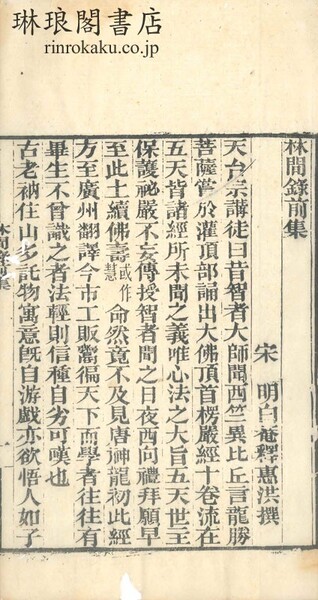 琳琅閣書店
rinrokaku.co.jp
林間錄前集
宋 明白菴釋惠洪撰
天台宗講徒曰昔智者大師聞西竺異比丘言龍勝
菩薩嘗於灌頂部誦出大佛頂首楞嚴經十卷流在
五天皆諸經所未聞之義唯心法之大旨五天世主
保護祕嚴不妄傳授智者聞之日夜西向禮拜願早
至此土續佛壽或作慧命然竟不及見唐神龍初此經
方至廣州翻譯今市工販鬻徧天下而學者往往有
畢生不曾識之者法輕則信種自劣可嘆也
古老衲住山多託物寓意既自游戲亦欲悟人如子
林間錄前集
一